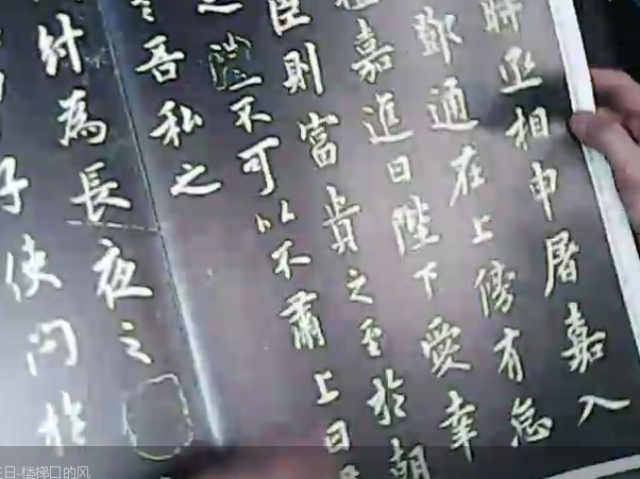 時丞相申屠嘉入
鄧通在上傍有怠
嘉進曰陛下愛幸
臣則富貴之至於朝
不可以不肅上曰
吾私之
計為長夜之
子使問於
正日-楼梯口的风